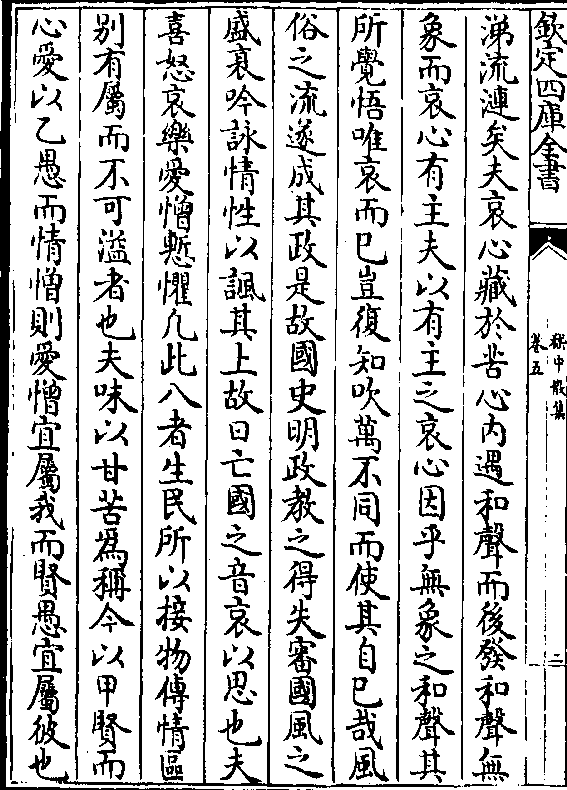 欽定四庫全書
嵇中散集
卷五
二
涕流漣矣夫哀心藏於苦心內遇和聲而後發和聲無
象而哀心有主夫以有主之哀心因乎無象之和聲其
所覺悟唯哀而已豈復知吹萬不同而使其自已哉風
俗之流遂成其政是故國史明政教之得失審國風之
盛衰吟詠情性以諷其上故曰亡國之音哀以思也夫
喜怒哀樂愛憎慙懼凡此八者生民所以接物傳情區
別有屬而不可溢者也夫味以甘苦為稱今以甲賢而
心愛以乙愚而情憎則愛憎宜屬我而賢愚宜屬彼也